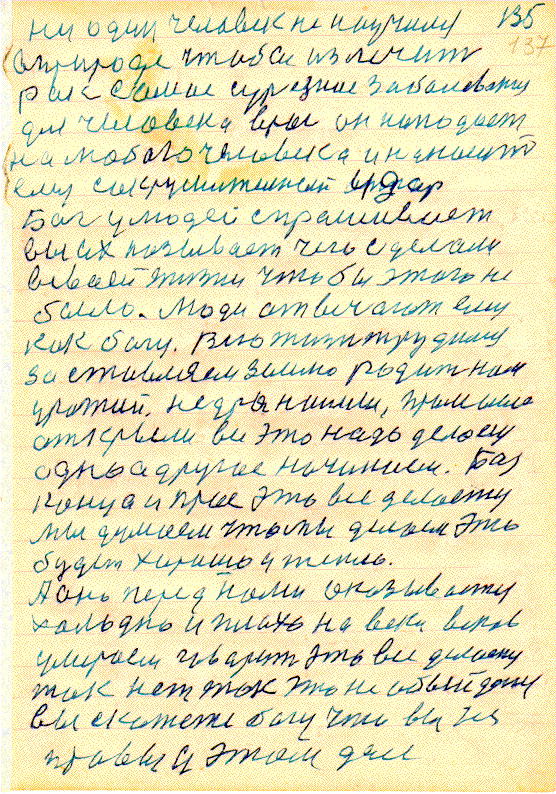 ни один человек не научился 135
в природе чтобы излечит 137
рак самое сурезное заболевания
для человека враг он нападает
на любого человека и наносит
ему сокрушительный удар
Бог у людей спрашивает
вы их называет чего сделали
в своей жизни чтобы этого не
было. Люди отвечают ему
как богу. Всю жизнь трудимся
заставляем землю родит нам
урожай, недра нашли, промысла
открыли все это надо делаем
одно а другое начинаем. Баз
конца и края это все делается
мы думаем что мы делаем это
будет хорошо и тепло.
А оно перед нами оказывается
холодно и плохо на века веков
умираем гварит это все делаем
так нет так это не обойдешся
вы скажете богу что вы не
правы в этом деле